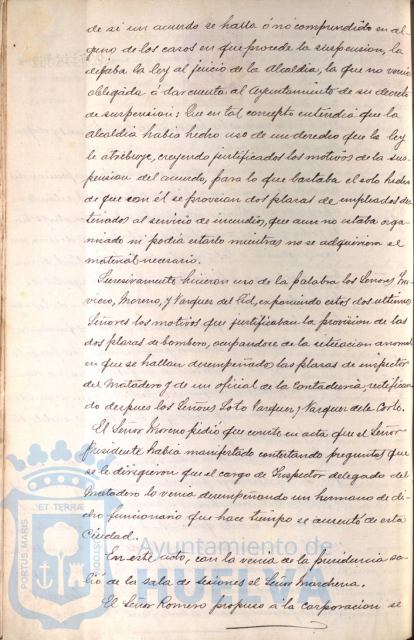 de si un acuerdo se halla ó nó comprendido en al-
guno de los casos en que procede la suspension, la
dejaba la ley al juicio de la Alcaldia, la que no venia
obligada á dar cuenta al Ayuntamiento de su decreto
de suspension: Que en tal concepto entendia que la
alcaldia habia hecho uso de un derecho que la ley
le atribuye, creyendo justificados los motivos de la sus-
pension del acuerdo, para lo que bastaba el solo hecho
de que con él se proveian dos plazas de empleados des-
tinados al servicio de incendios, que aun no estaba orga-
nizado ni podia estarlo mientras no se adquiriera el
material necesario.
Sucesivamente hicieron uso de la palabra los Señores
Moreno, y Vazquez del Cid, exponiendo estos dos ultimos
Señores los motivos que justificaban la provision de las
dos plazas de bombero, ocupandose de la situacion anomal
en que se hallan desempeñadas las plazas de inspector
del Matadero y de un oficial de la contaduria, rectifican-
do despues los Señores Soto Vazquez, y Vazquez de la Corte.
El Señor Moreno pidió que conste en acta que el Señor
Presidente habia manifestado contestando preguntas que
se le dirigieron que el cargo de Inspector delegado del
Matadero lo venia desempeñando un hermano de di-
cho funcionario que hace tiempo se ausentó de esta
Ciudad.
En este acto, con la venia de la presidencia sa-
lió de la sala de sesiones el Señor Marchena.
El Señor Romero propuso á la corporacion se
PORTUS MARIS ET TERRÆ CUSTODIA
Ayuntamiento de
HUELVA